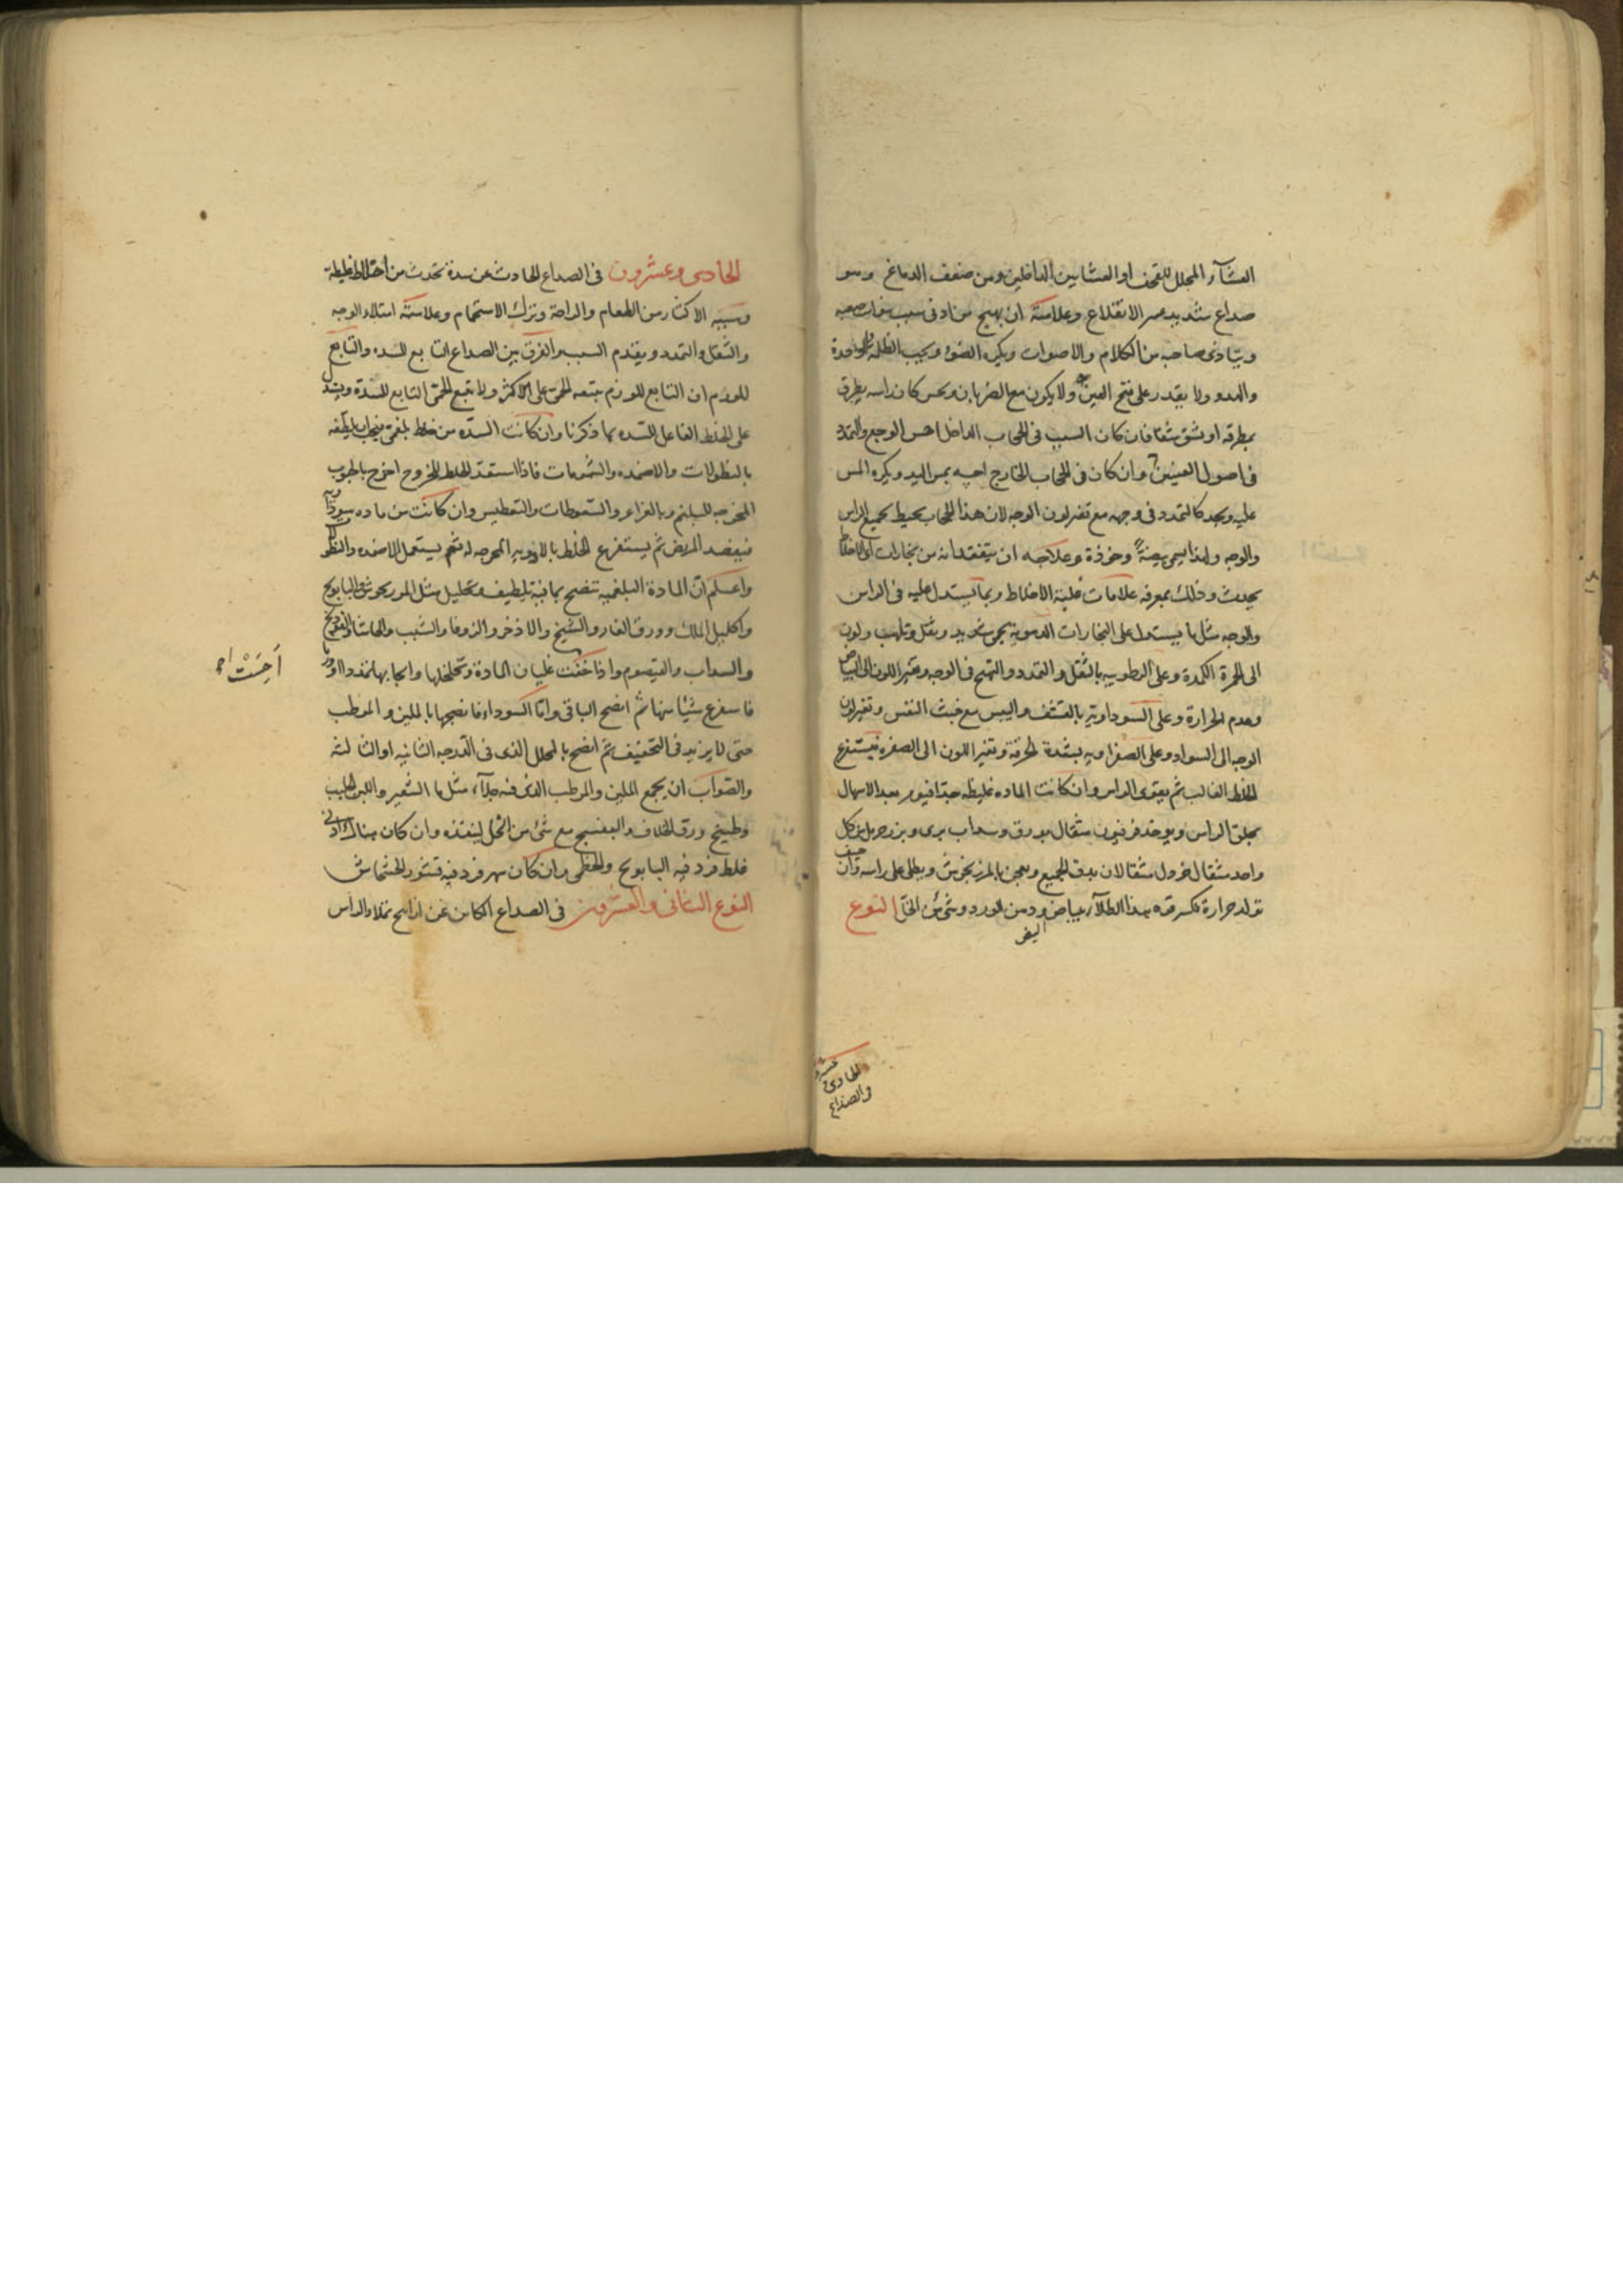 الغشآء المجلل للقحف او الغشايين الداخلين ومن ضعف الدماغ وهو
صداع شديد عسر الانقلاع وعلامته ان يهيج من ادنى سبب
ويتاذى صاحبه من الكلام والاصوات ويكره الضوء ويحب الظلمة والوحدة
والهدو ولا يقدر على فتح العين ولا يكون مع الضربان ويحس كان راسه يطرق
بمطرقة او يشق شقا فان كان السبب فى الحجاب الداخل احس الوجع والتمدد
فى اصول العينين وان كان فى الحجاب الخارج احسه بمس اليد ويكره المس
عليه ويجد كالتمدد فى وجهه مع تغير لون الوجه لان هذا الحجاب محيط بجميع الراس
والوجه ولهذا يسمى بيضة وخوذة وعلاجه ان يتفقد انه من بخارات او اخلاط
يحدث وذلك بمعرفة علامات غلبة الاخلاط وبما يستدل عليه فى الراس
والوجه مثل ما يستدل على البخارات الدموية بحمى شديد وثقل وتلهب ولون
الى الحمرة الكمدة وعلى الرطوبيه بالثقل والتمدد والتهيج فى الوجه وتغير اللون الى البياض
وعدم الحرارة وعلى السوداوية بالقشف واليبس مع خبث النفس وتغير لون
الوجه الى السواد وعلى الصفراويه بشدة الحرقة وتغير اللون الى الصفره فيستفرغ
الخلط الغالب ثم يقوى الراس وان كانت الماده غليظه جدا فيومر بعد الاسهال
بحلق الراس ويوخذ فربيون مثقال بورق وسداب برى وبزر حرمل من كل
واحد مثقال خردل مثقالان يدق الجميع ويعجن بالمرزنجوش ويطلى على راسه وان خيف
تولد حرارة تكسر قوه هذا الطلآء ببياض البيض ودهن الورد وشئ من الخل النوع
الحادى
والصداع
الحادى وعشرون فى الصداع الحادث عن سدة تحدث من اخلاط غليظة
وسببه الاكثار من الطعام والراحة وترك الاستحمام وعلامته امتلاء الوجه
والثقل والتمدد ويقدم السبب والفرق بين الصداع التابع للسده والتابع
للورم ان التابع للورم يتبعه الحمى على الاكثر ولا تتبع الحمى التابع للسدة ويستدل
على الخلط الفاعل للسده بما ذكرنا وان كانت السده من خلط بلغمى فيجب ان يلطفه
بالنطولات والاضمده والشمومات فاذا استعد الخلط للخروج اخرج بالحبوب
المخرجه للبلغم وبالغراغر والسعوطات والتعطيس وان كانت من ماده سوداويه
فيفصد المريض ثم يستفرغ الخلط بالادويه المخرجه له ثم يستعمل الاضمده والنطولات
واعلم ان المادة البلغميه تنضج بما فيه تلطيف وتحليل مثل المرزنجوش والبابونج
واكليل الملك وورق الغار والشيح والاذخر والزوفا والشبب والحاشا والفودنج
والسداب والقيصوم واذا خفت غليان المادة وتخلخلها
فاستفرغ شيئا منها ثم انضج الباقى واما السوداء فانضجها بالملين والمرطب
حتى لا يزيد فى التجفيف ثم انضج بالمحلل الذى فى الدرجه الثانيه او الثالثه
والصواب ان يجمع الملين والمرطب الذى فيه جلآء مثل ما الشعير واللبن الحليب
وطبيخ ورق الخلاف والبنفسج مع شئ من الخل لينفذه وان كان هناك ادنى
غلظ فزد فيه البابونج والخطمى وان كان سهر فزد فيه قشور الخشخاش
النوع الثانى والعشرون فى الصداع الكاين عن رايح تملاء الراس